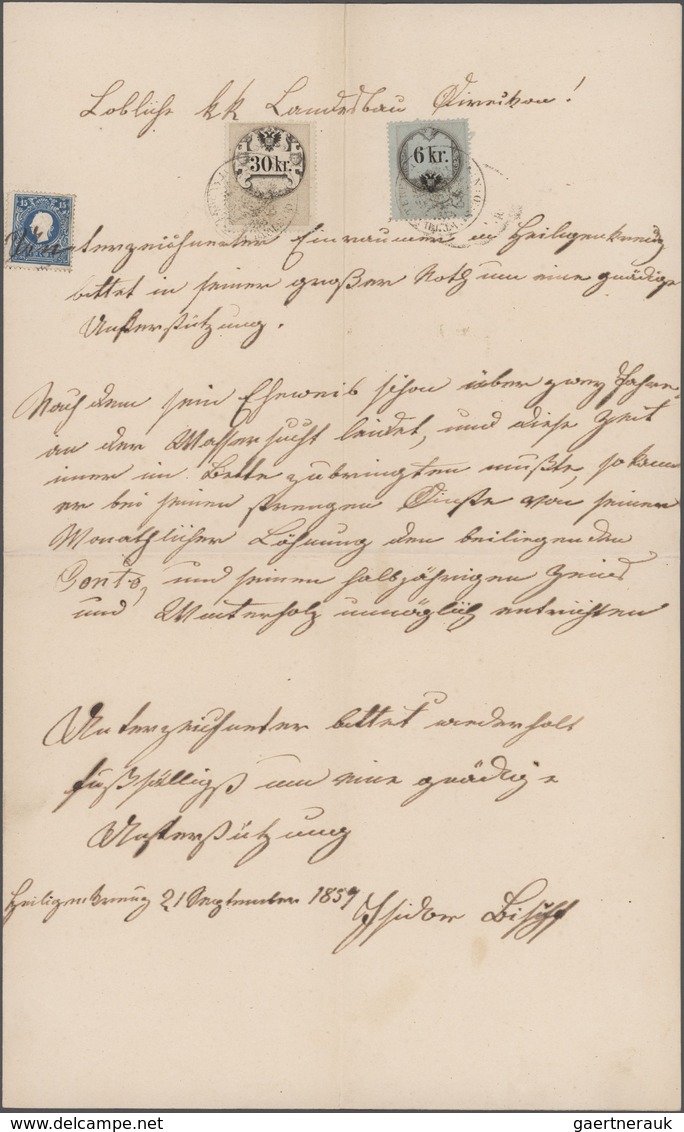 Lobliche kk Landesbau Direckion!
30 kr.
6 kr.
15 15
Unterzeichneter Einraumer in Heiligenkreuz
bittet in seiner großer Noth um eine gnädige
Unterstützung.
Nach dem sein Eheweib schon über zwey Jahre
an der Wassersucht leidet, und diese Zeit
imer im Bette zubringten mußte, so kann
er bei seinen strengen Dienste von seiner
Monathlicher Löhnung den beiliegenden
Conto, und seinen halbjährigen Zeins
und Winterholz unmöglich entrichten
Unterzeichneter bittet wiederholt
fußfälligst um eine gnädige
Unterstützung
Heiligenkreuz 21 September 1859 Isidor Bischff
delcampe.net
gaertnerauk